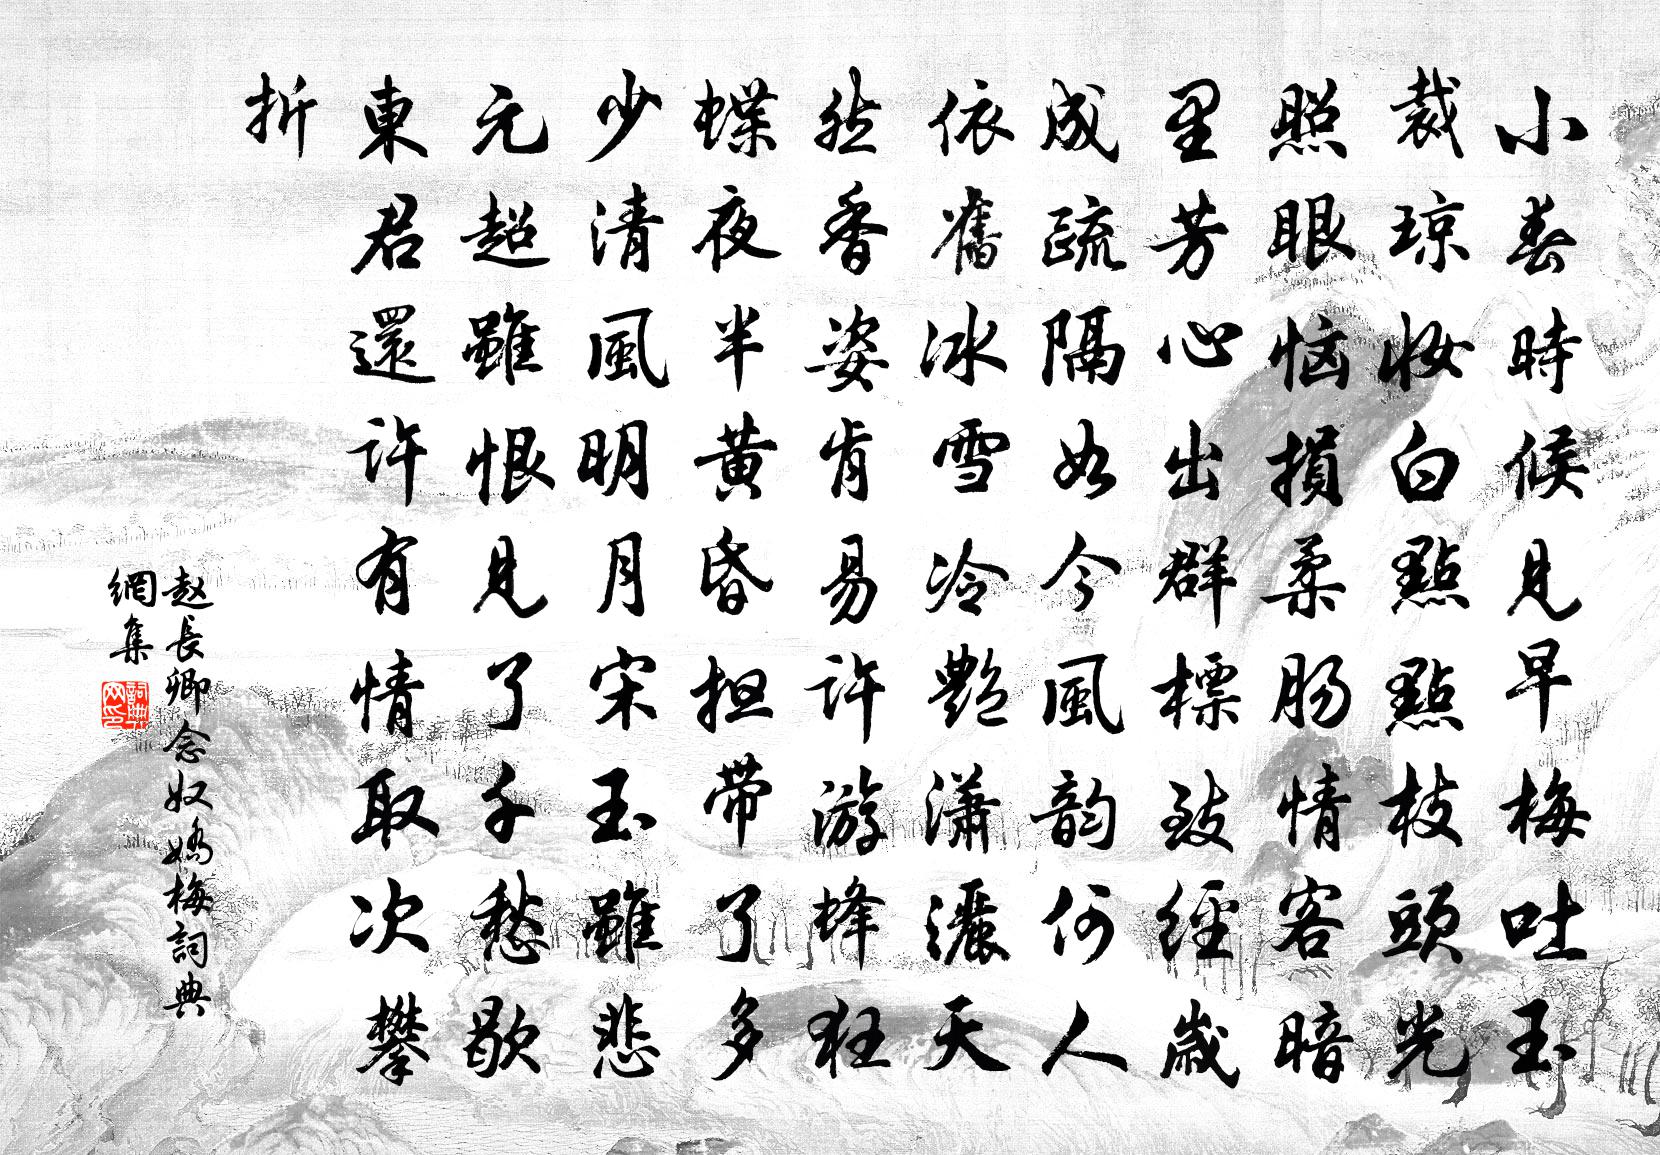 小春時候見早梅吐玉
裁琼妝白點點枝頭光
照眼恼損柔肠情客暗
里芳心出群標致經歲
成疏隔如今風韵何人
依舊冰雪冷艷潇灑天
然香姿肯易許游蜂狂
蝶夜半黄昏担带了多
少清風明月宋玉雖悲
元超雖恨見了千愁歇
東君還許有情取次攀
折
赵長卿念奴嬌梅詞典
網集
詞典网印